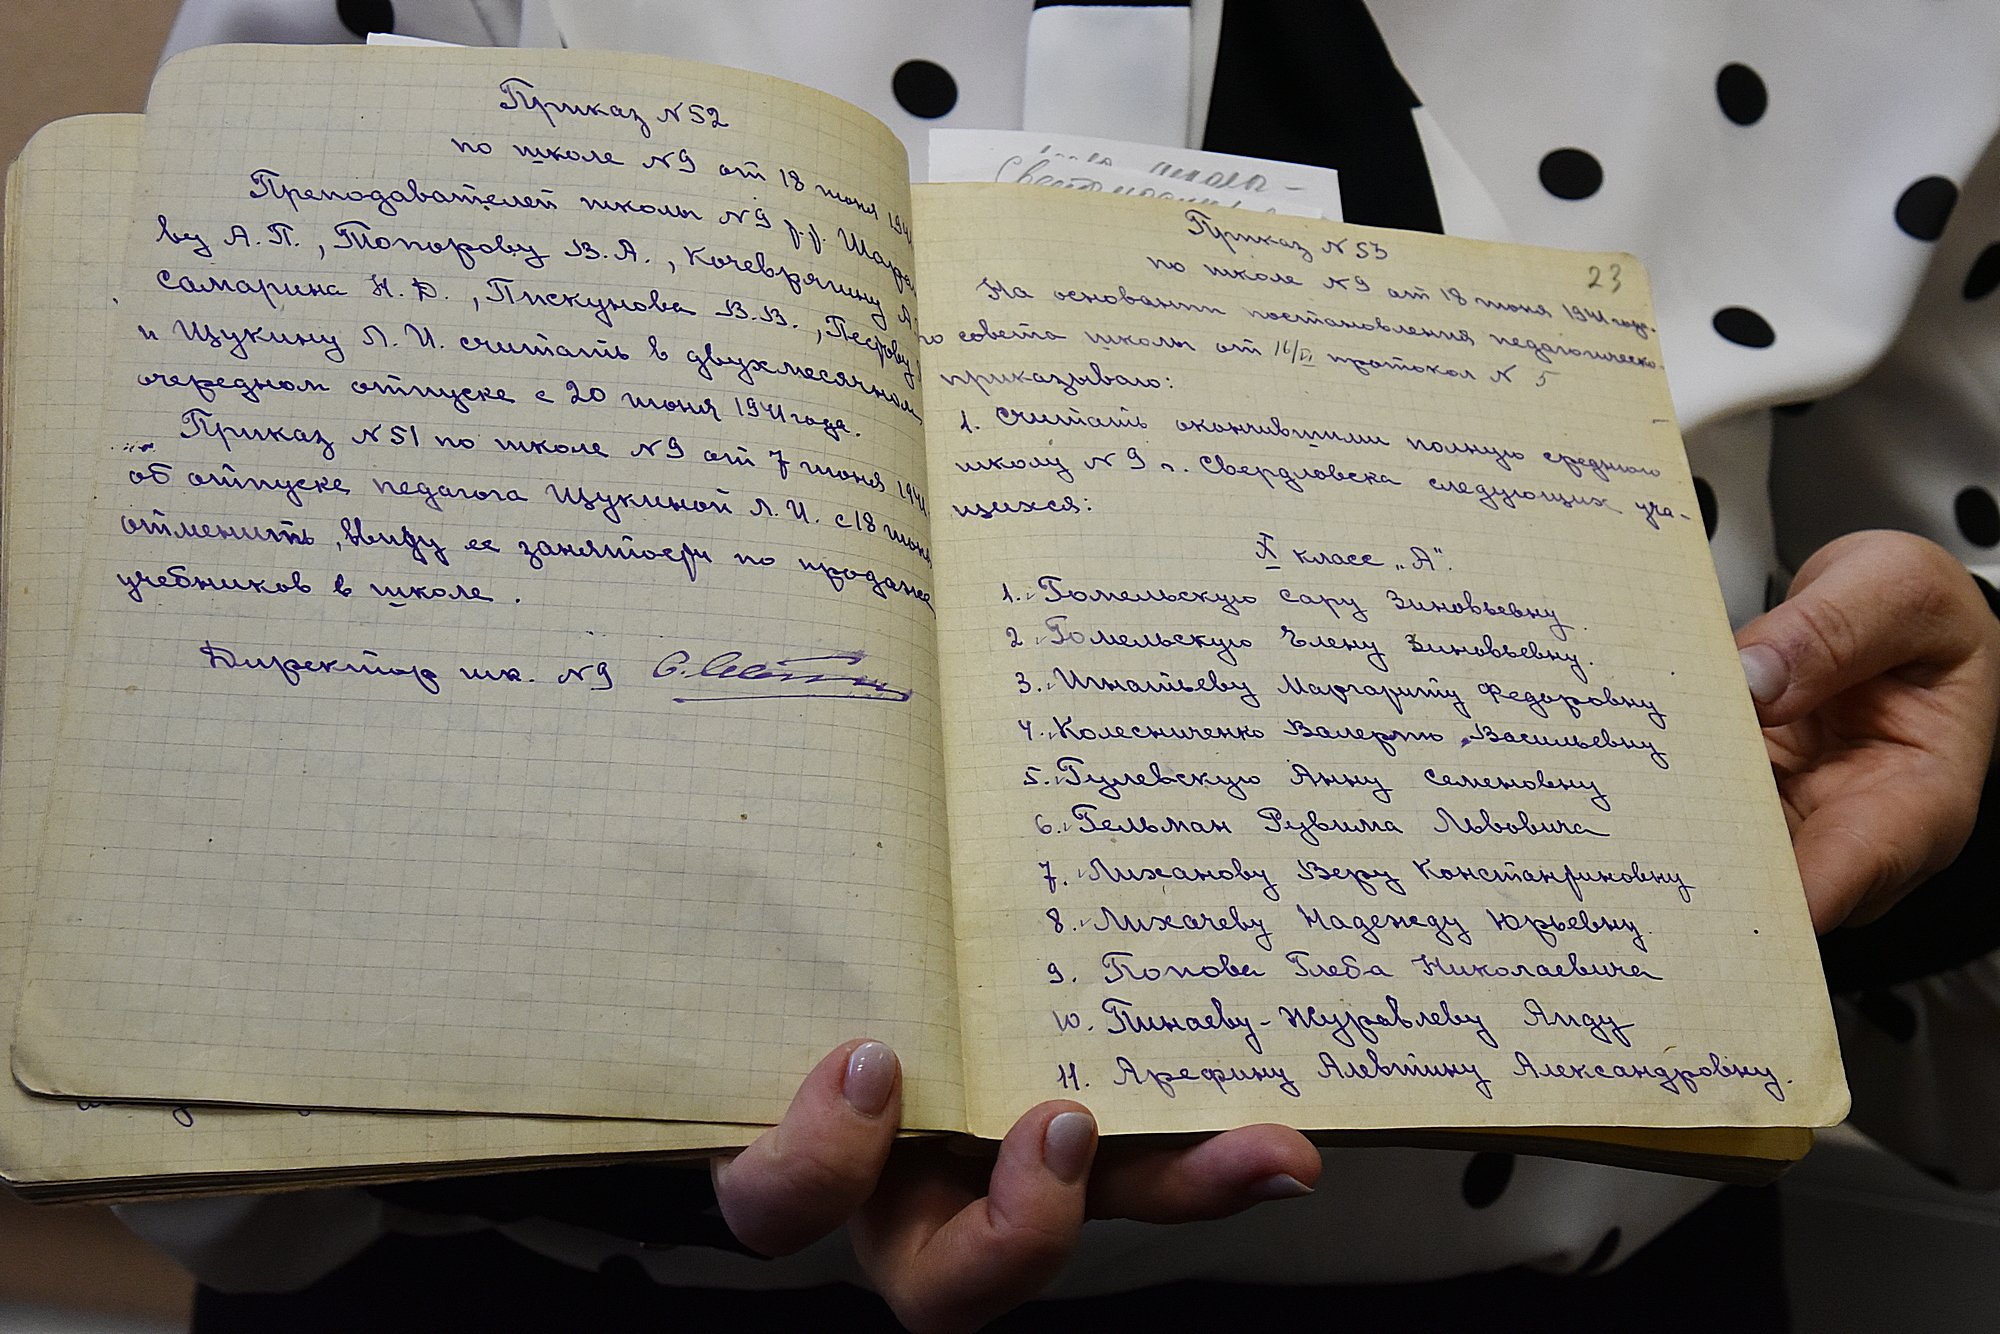 Приказ №52
по школе №9 от 18 июня 1941
Преподавателей школы №9 г.г. Шара
ву А.П., Топорову В.А., Кочеврягину А.
Самарина Н.Ф., Пискунова В.В.,
и Щукину Л.И. считать в двухмесячном
очередном отпуске с 20 июня 1941 года.
Приказ №51 по школе №9 от 7 июня 1941
об отпуске педагога Щукиной Л.И. с 18 июня
отменить, ввиду ее занятости по продаже
учебников в школе.
Директор шк. №9
школа-
23
Приказ №53
по школе №9 от 18 июня 1941 года.
На основании постановления педагогическо-
го совета школы от 16/VI протокол №5
приказываю:
1. Считать окончившими полную среднюю
школу №9 г. Свердловска следующих уча-
щихся:
X класс „А".
1. Гомельскую Сару Зиновьевну.
2. Гомельскую Елену Зиновьевну.
3. Игнатьеву Маргариту Федоровну
4. Колесниченко Валерию Васильевну
5. Гулевскую Анну Семеновну
6. Гельман Рувима Львовича
7. Лиханову Веру Константиновну
8. Лихачеву Надежду Юрьевну.
9. Попова Глеба Николаевича
10. Пинаеву-Журавлеву Аиду
11. Арефину Алевтину Александровну.